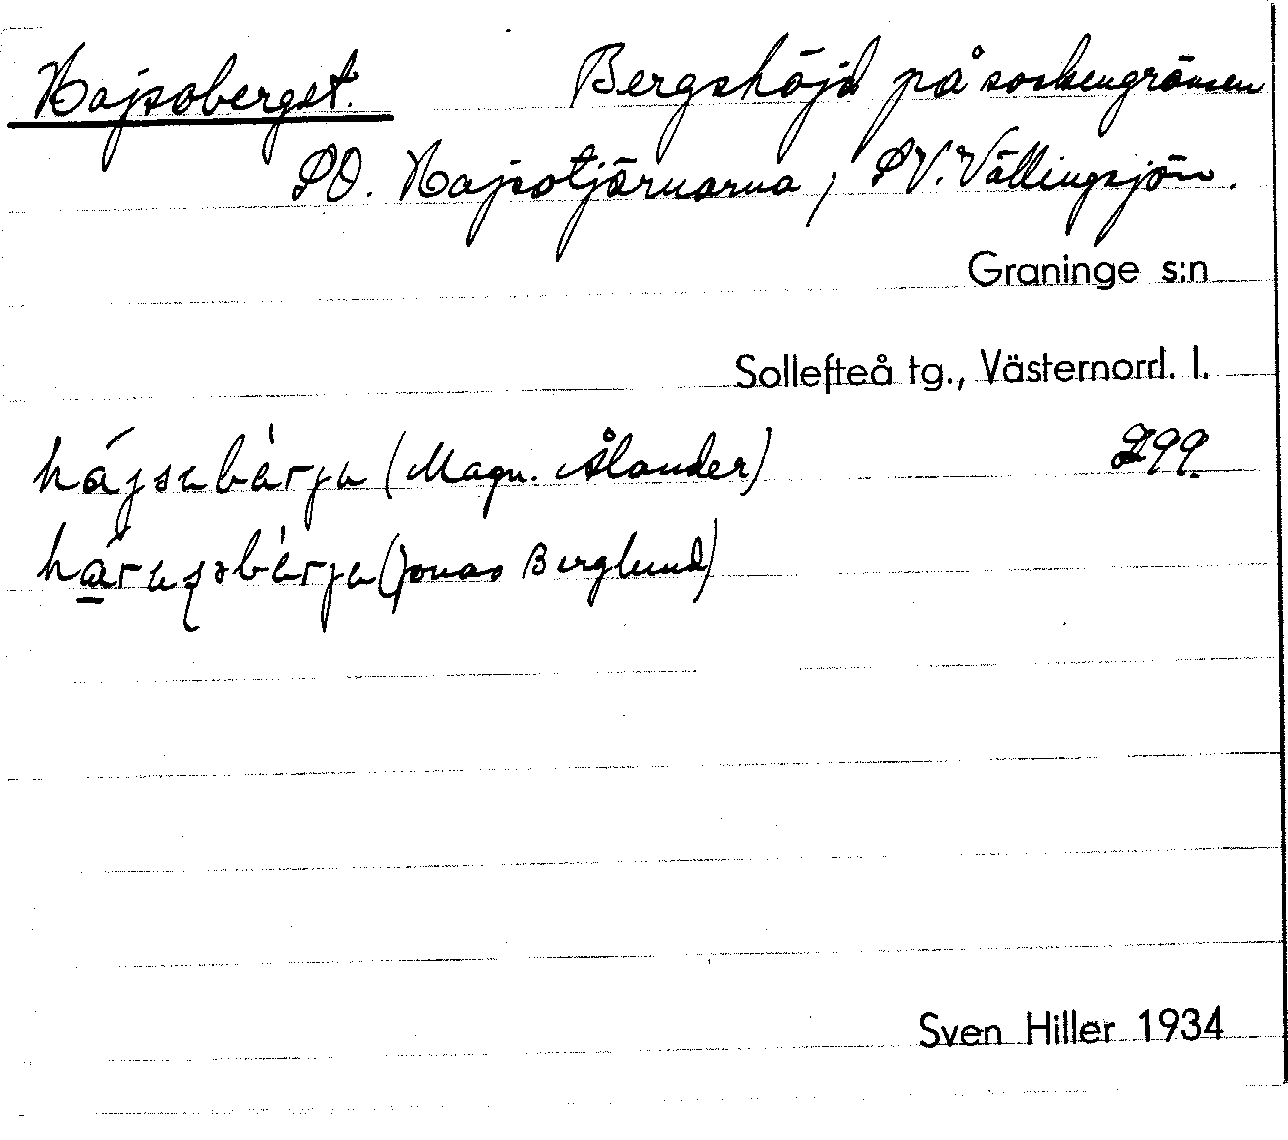 Hajsoberget. Bergshöjd på sockengränsen
SO. Hajsotjärnarna, SV. Vällingsjön.
Graninge s:n
Sollefteå tg., Västernorrl. l.
(Magn. Ålander) 299.
(Jonas Berglund)
Sven Hiller 1934